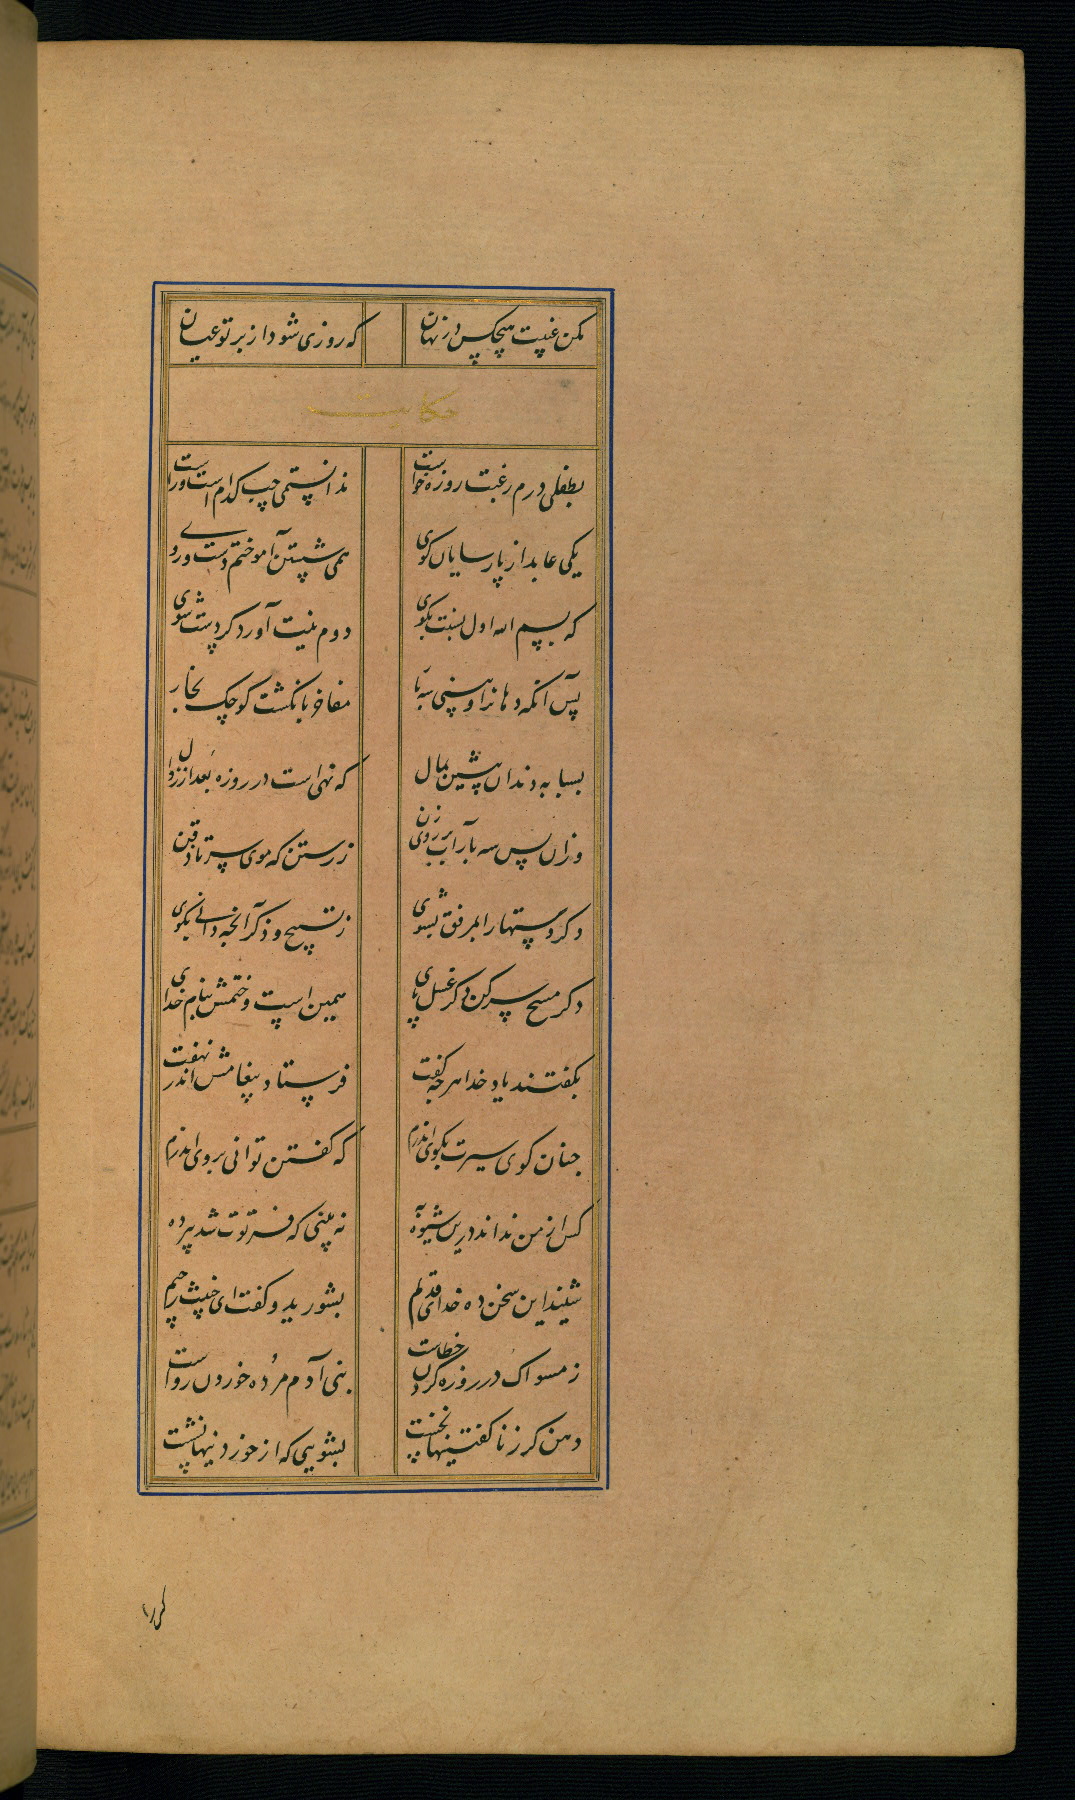 مکن غیبت هیچکس در نهان که روزی شود از بر تو عیان
حکایت
بطفلی درم رغبت روزه خواست ندانستمی چپ کدام است و راست
یکی عابد از پارسایان کوی همی شستن آموختم دست و روی
که بسم الله اول بسنت بکوی دوم نیت آور دکر دست شوی
پس آنکه دهانرا و بینی سه بار مفاخر بانکشت کوچک بخار
بسبابه دندان پیشین بمال که نهی است در روزه بعد از زوال
وزان پس سه بار آب بر روی زن ز رستن که موی سر تا ذقن
دکر دستها را بمرفق بشوی ز تسبیح و ذکر آنچه دانی بکوی
دکر مسح سر کن دکر غسل پای همین است و ختمش بنام خدای
بکفتند یاد خدا هر چه کفت فرستاد پیغامش اندر نهفت
چنان کوی سیرت بکوی اندرم که کفتن توانی بروی اندرم
کس از من نداند درین شیوه به نه بینی که فرتوت شد پیر ده
شنید این سخن ده خدای قدیم بشورید و کفت ای خبیث رجیم
ز مسواک در روزه کردن خطاست بنی آدم مرده خوردن رواست
دهن کر ز ناکفتنیها نخست بشویی که از خوردنیها نشست